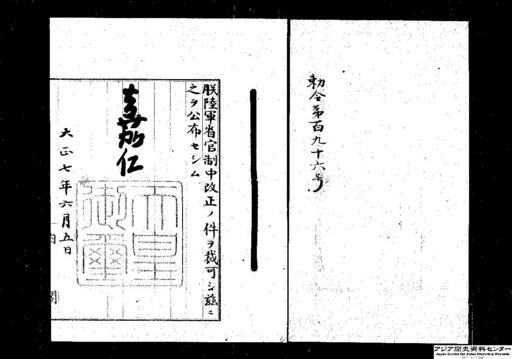 勅令第百九十六号
朕陸軍省官制中改正ノ件ヲ裁可シ茲ニ
之ヲ公布セシム
嘉仁
天皇
御璽
大正七年六月五日
内
閣
アジア歴史資料センター
Japan Center for Asian Historical Records